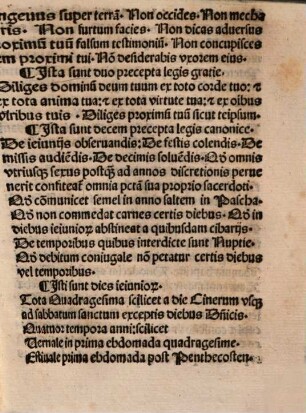 ngeuus super terrā. Non occides. Non mecha
ris. Non furtum facies. Non dicas aduersus
proximū tuū falsum testimoniū. Non concupisces
em proximi tui. Nō desiderabis vxorem eius.
¶ Ista sunt duo precepta legis gratie.
Diliges dominū deum tuum ex toto corde tuo: ⁊
ex tota anima tua: ⁊ ex tota virtute tua: ⁊ ex oībus
viribus tuis. Diliges proximū tuū sicut teipsum.
¶ Ista sunt decem precepta legis canonice.
De ieiunijs obseruandis: De festis colendis. De
missis audiēdis. De decimis soluēdis. Qđ omnis
vtriusqȝ sexus postqȝ ad annos discretionis perue
nerit confiteat̄ omnia pctā sua proprio sacerdoti.
Qđ cōmunicet semel in anno saltem in Pascha.
Qđ non commedat carnes certis diebus. Qđ in
diebus ieiuniorū abstineat a quibusdam cibarijs.
De temporibus quibus interdicte sunt Nuptie.
Qđ debitum coniugale nō petatur certis diebus
vel temporibus.
¶ Isti sunt dies ieiuniorꝝ.
Tota Quadragesima scilicet a die Cinerum vsqȝ
ad sabbatum sanctum exceptis diebus Dn̄icis.
Quatuor tempora anni: scilicet
Uernale in prima ebdomada quadragesime.
Estiuale prima ebdomada post Penthecosten.